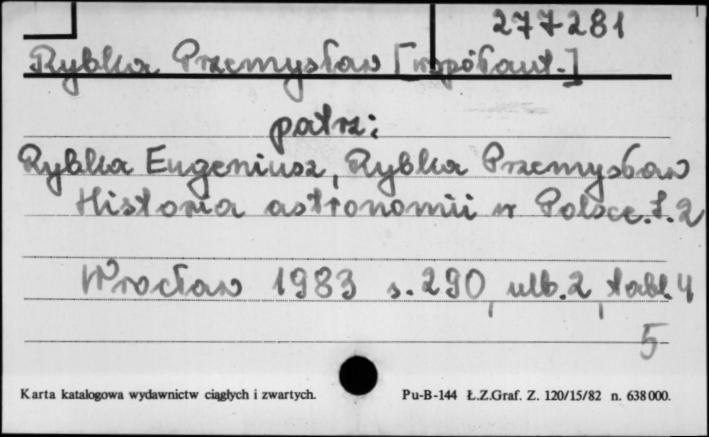 277281
Rybka Przemysław [współaut.]
patrz:
Rybka Eugeniusz, Rybka Przemysław
Historia astronomii w Polsce. T. 2
Wrocław 1983 s. 290, nlb. 2, tabl. 4
5
Karta katalogowa wydawnictw ciągłych i zwartych. Pu-B-144 Ł.Z.Graf. Z. 120/15/82 n. 638000.